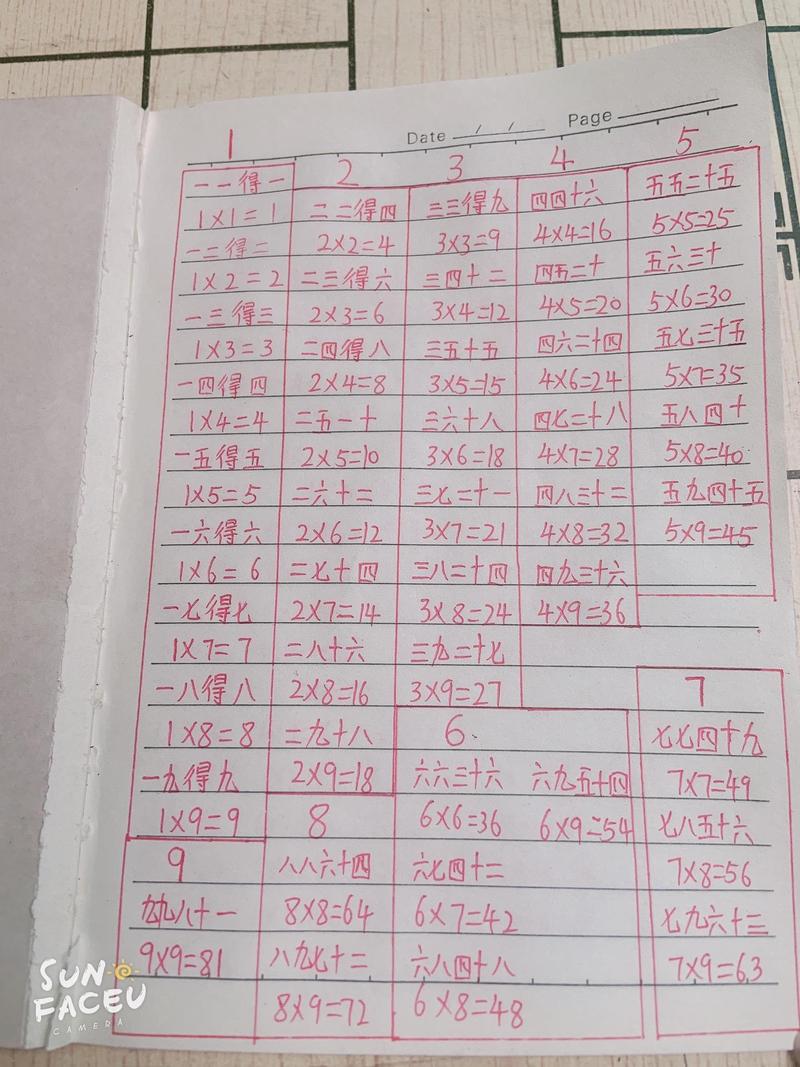 Date / / Page
1
一一得一
1×1=1
一二得二
1×2=2
一三得三
1×3=3
一四得四
1×4=4
一五得五
1×5=5
一六得六
1×6=6
一七得七
1×7=7
一八得八
1×8=8
一九得九
1×9=9
2
二二得四
2×2=4
二三得六
2×3=6
二四得八
2×4=8
二五一十
2×5=10
二六十二
2×6=12
二七十四
2×7=14
二八十六
2×8=16
二九十八
2×9=18
3
三三得九
3×3=9
三四十二
3×4=12
三五十五
3×5=15
三六十八
3×6=18
三七二十一
3×7=21
三八二十四
3×8=24
三九二十七
3×9=27
4
四四十六
4×4=16
四五二十
4×5=20
四六二十四
4×6=24
四七二十八
4×7=28
四八三十二
4×8=32
四九三十六
4×9=36
5
五五二十五
5×5=25
五六三十
5×6=30
五七三十五
5×7=35
五八四十
5×8=40
五九四十五
5×9=45
6
六六三十六
6×6=36
六七四十二
6×7=42
六八四十八
6×8=48
六九五十四
6×9=54
7
七七四十九
7×7=49
七八五十六
7×8=56
七九六十三
7×9=63
8
八八六十四
8×8=64
八九七十二
8×9=72
9
九九八十一
9×9=81
SUN
FACEU
CAMERA